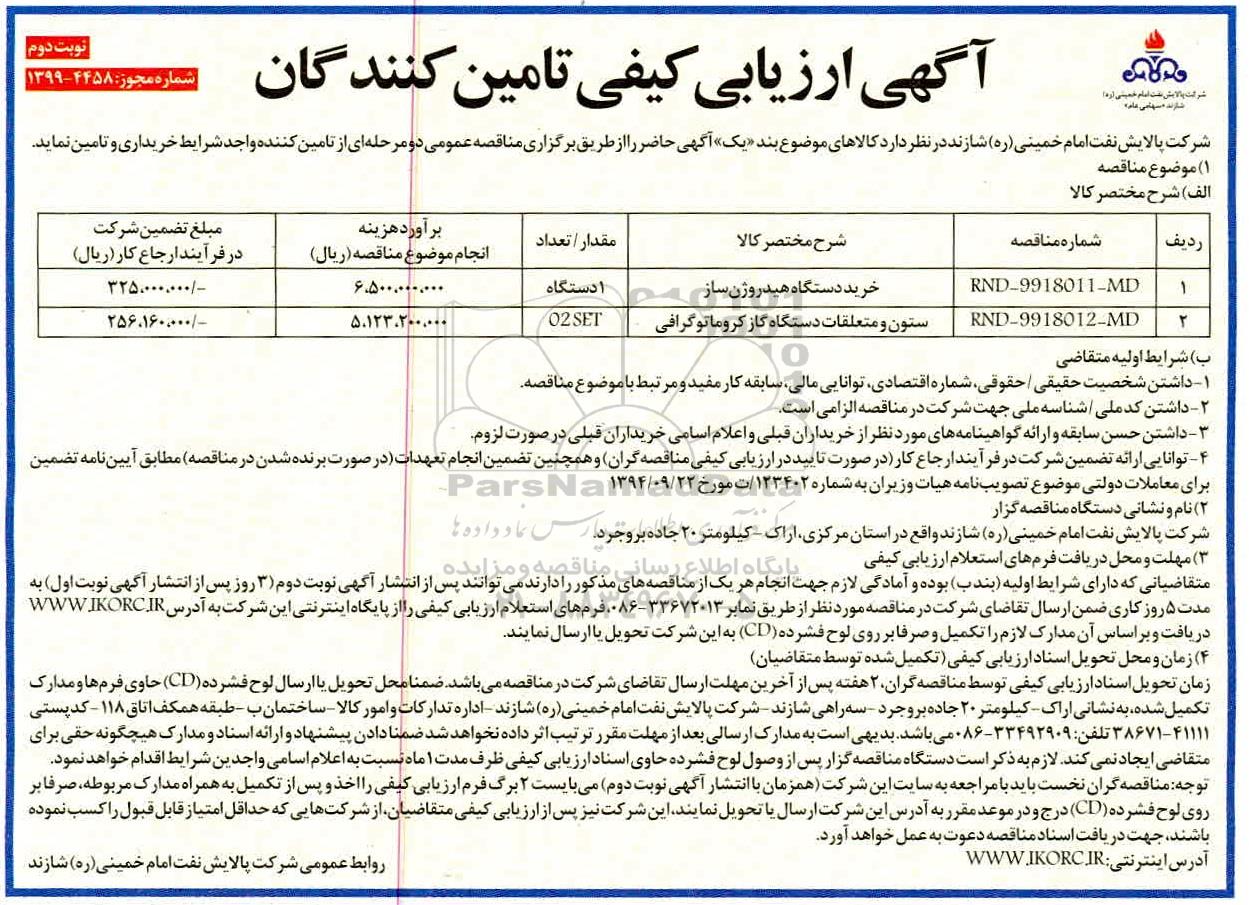 نوبت دوم
شماره مجوز: ۴۴۵۸-۱۳۹۹
آگهی ارزیابی کیفی تامین کنندگان
شرکت پالایش نفت امام خمینی (ره)
شازند «سهامی عام»
شرکت پالایش نفت امام خمینی (ره) شازند در نظر دارد کالاهای موضوع بند «یک» آگهی حاضر را از طریق برگزاری مناقصه عمومی دو مرحله‌ای از تامین کننده واجد شرایط خریداری و تامین نماید.
۱) موضوع مناقصه
الف) شرح مختصر کالا
ردیف | شماره مناقصه | شرح مختصر کالا | مقدار / تعداد | برآورد هزینه انجام موضوع مناقصه (ریال) | مبلغ تضمین شرکت در فرآیند ارجاع کار (ریال)
۱ | RND-9918011-MD | خرید دستگاه هیدروژن ساز | ۱ دستگاه | ۶.۵۰۰.۰۰۰.۰۰۰ | ۳۲۵.۰۰۰.۰۰۰/-
۲ | RND-9918012-MD | ستون و متعلقات دستگاه گاز کروماتوگرافی | 02SET | ۵.۱۲۳.۲۰۰.۰۰۰ | ۲۵۶.۱۶۰.۰۰۰/-
ب) شرایط اولیه متقاضی
۱- داشتن شخصیت حقیقی / حقوقی، شماره اقتصادی، توانایی مالی، سابقه کار مفید و مرتبط با موضوع مناقصه.
۲- داشتن کد ملی / شناسه ملی جهت شرکت در مناقصه الزامی است.
۳- داشتن حسن سابقه و ارائه گواهینامه‌های مورد نظر از خریداران قبلی و اعلام اسامی خریداران قبلی در صورت لزوم.
۴- توانایی ارائه تضمین شرکت در فرآیند ارجاع کار (در صورت تایید در ارزیابی کیفی مناقصه گران) و همچنین تضمین انجام تعهدات (در صورت برنده شدن در مناقصه) مطابق آیین نامه تضمین
برای معاملات دولتی موضوع تصویب نامه هیات وزیران به شماره ۱۲۳۴۰۲/ت مورخ ۱۳۹۴/۰۹/۲۲
۲) نام و نشانی دستگاه مناقصه گزار
شرکت پالایش نفت امام خمینی (ره) شازند واقع در استان مرکزی، اراک - کیلومتر ۲۰ جاده بروجرد.
۳) مهلت و محل دریافت فرم‌های استعلام ارزیابی کیفی
متقاضیانی که دارای شرایط اولیه (بند ب) بوده و آمادگی لازم جهت انجام هر یک از مناقصه‌های مذکور را دارند می توانند پس از انتشار آگهی نوبت دوم (۳ روز پس از انتشار آگهی نوبت اول) به
مدت ۵ روز کاری ضمن ارسال تقاضای شرکت در مناقصه مورد نظر از طریق نمابر ۳۳۶۷۲۰۱۳-۰۸۶، فرم‌های استعلام ارزیابی کیفی را از پایگاه اینترنتی این شرکت به آدرس WWW.IKORC.IR
دریافت و بر اساس آن مدارک لازم را تکمیل و صرفا بر روی لوح فشرده (CD) به این شرکت تحویل یا ارسال نمایند.
۴) زمان و محل تحویل اسناد ارزیابی کیفی (تکمیل شده توسط متقاضیان)
زمان تحویل اسناد ارزیابی کیفی توسط مناقصه گران، ۲ هفته پس از آخرین مهلت ارسال تقاضای شرکت در مناقصه می باشد. ضمنا محل تحویل یا ارسال لوح فشرده (CD) حاوی فرم‌ها و مدارک
تکمیل شده، به نشانی اراک - کیلومتر ۲۰ جاده بروجرد - سه راهی شازند - شرکت پالایش نفت امام خمینی (ره) شازند - اداره تدارکات و امور کالا - ساختمان ب - طبقه همکف اتاق ۱۱۸ - کدپستی
۳۸۶۷۱-۴۱۱۱۱ تلفن: ۳۳۴۹۲۹۰۹-۰۸۶ می باشد. بدیهی است به مدارک ارسالی بعد از مهلت مقرر ترتیب اثر داده نخواهد شد ضمنا دادن پیشنهاد و ارائه اسناد و مدارک هیچگونه حقی برای
متقاضی ایجاد نمی کند. لازم به ذکر است دستگاه مناقصه گزار پس از وصول لوح فشرده حاوی اسناد ارزیابی کیفی ظرف مدت ۱ ماه نسبت به اعلام اسامی واجدین شرایط اقدام خواهد نمود.
توجه: مناقصه گران نخست باید با مراجعه به سایت این شرکت (همزمان با انتشار آگهی نوبت دوم) می بایست ۲ برگ فرم ارزیابی کیفی را اخذ و پس از تکمیل به همراه مدارک مربوطه، صرفا بر
روی لوح فشرده (CD) درج و در موعد مقرر به آدرس این شرکت ارسال یا تحویل نمایند، این شرکت نیز پس از ارزیابی کیفی متقاضیان، از شرکت‌هایی که حداقل امتیاز قابل قبول را کسب نموده
باشند، جهت دریافت اسناد مناقصه دعوت به عمل خواهد آورد.
آدرس اینترنتی: WWW.IKORC.IR
روابط عمومی شرکت پالایش نفت امام خمینی (ره) شازند
ParsNamadData
پایگاه اطلاع رسانی مناقصه و مزایده